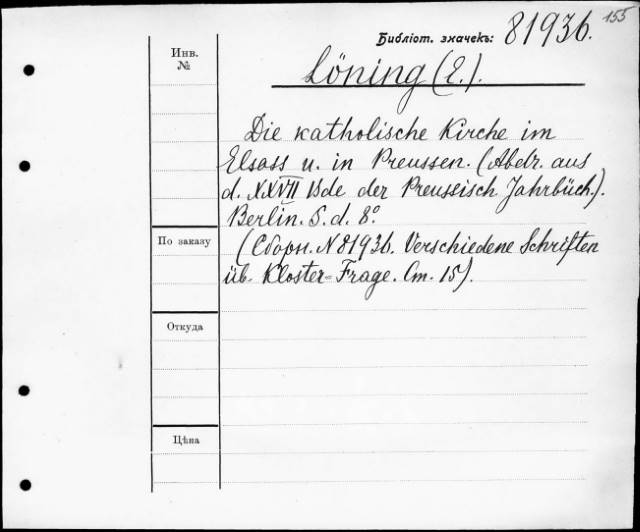 155
Библіот. значекъ: 81936.
Инв.
№
Löning (E.).
Die katholische Kirche im
Elsass u. in Preussen. (Abdr. aus
d. XXVII Bde der Preussisch Jahrbüch.).
Berlin. S. d. 8°.
По заказу
(Сборн. N 81936. Verschiedene Schriften
üb. Kloster-Frage. Am. 15).
Откуда
Цѣна